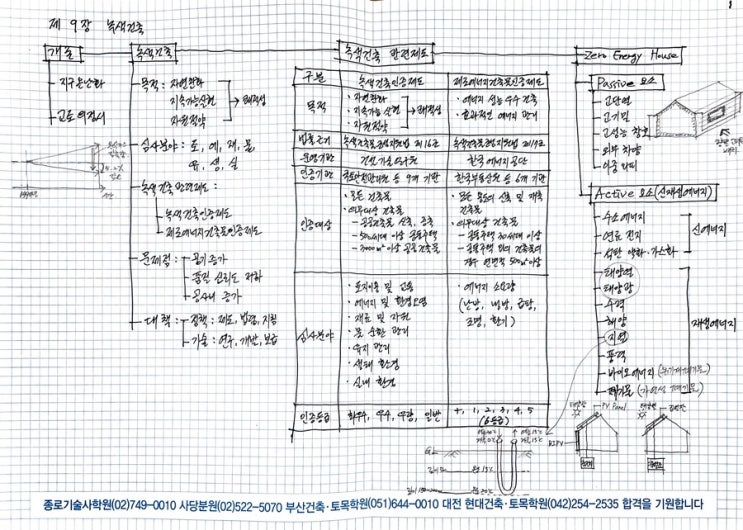 제 9장 녹색건축
개설
지구온난화
교토의정서
녹색건축
목적 : 자연환화
지속가능실현
자원절약
쾌적성
심사분야 : 토, 에, 재, 물
유, 생, 실
녹색건축 관련제도 :
녹색건축인증제도
제로에너지건축물인증제도
문제점 : 공기증가
품질 신뢰도 저하
공사비 증가
대책 : 정책 : 제도, 법령, 지침
기술 : 연구, 개발, 보급
녹색건축 관련제도
구분 녹색건축인증제도 제로에너지건축물인증제도
목적
· 자연환화
· 지속가능 실현
· 자원절약
쾌적성
· 에너지 성능 우수 건축
· 효과적인 에너지 관리
법률근거 녹색건축물 조성지원법 제16조 녹색건축물 조성지원법 제17조
운영기관 건설기술연구원 한국에너지공단
인증기관 등 9개 기관 한국부동산원 등 6개 기관
인증대상
· 모든 건축물
· 의무대상 건축물
- 공공건축물 신축, 증축
- 500세대 이상 공동주택
- 3000㎡ 이상 공공건축물
· 모든 용도의 신축 및 재축
건축물
· 의무대상 건축물
- 공동주택 30세대 이상
- 공동주택 외의 건축물의
경우 연면적 500㎡ 이상
심사분야
· 토지이용 및 교통
· 에너지 및 환경오염
· 재료 및 자원
· 물 순환 관리
· 유지 관리
· 생태 환경
· 실내 환경
· 에너지 소요량
(난방, 냉방, 급탕,
조명, 환기)
인증등급 최우수, 우수, 우량, 일반 +, 1, 2, 3, 4, 5
(6등급)
Zero Energy House
Passive 요소
고단열
고기밀
고성능 창호
외부 차양
이중 외피
Active 요소 (신재생에너지)
수소에너지
연료 전지
석탄 액화·가스화
신에너지
태양열
태양광
수력
해양
지열
풍력
바이오에너지
폐기물
재생에너지
태양광
PV Panel
BIPV
GL
종로기술사학원(02)749-0010 사당분원(02)522-5070 부산건축·토목학원(051)644-0010 대전 현대건축·토목학원(042)254-2535 합격을 기원합니다